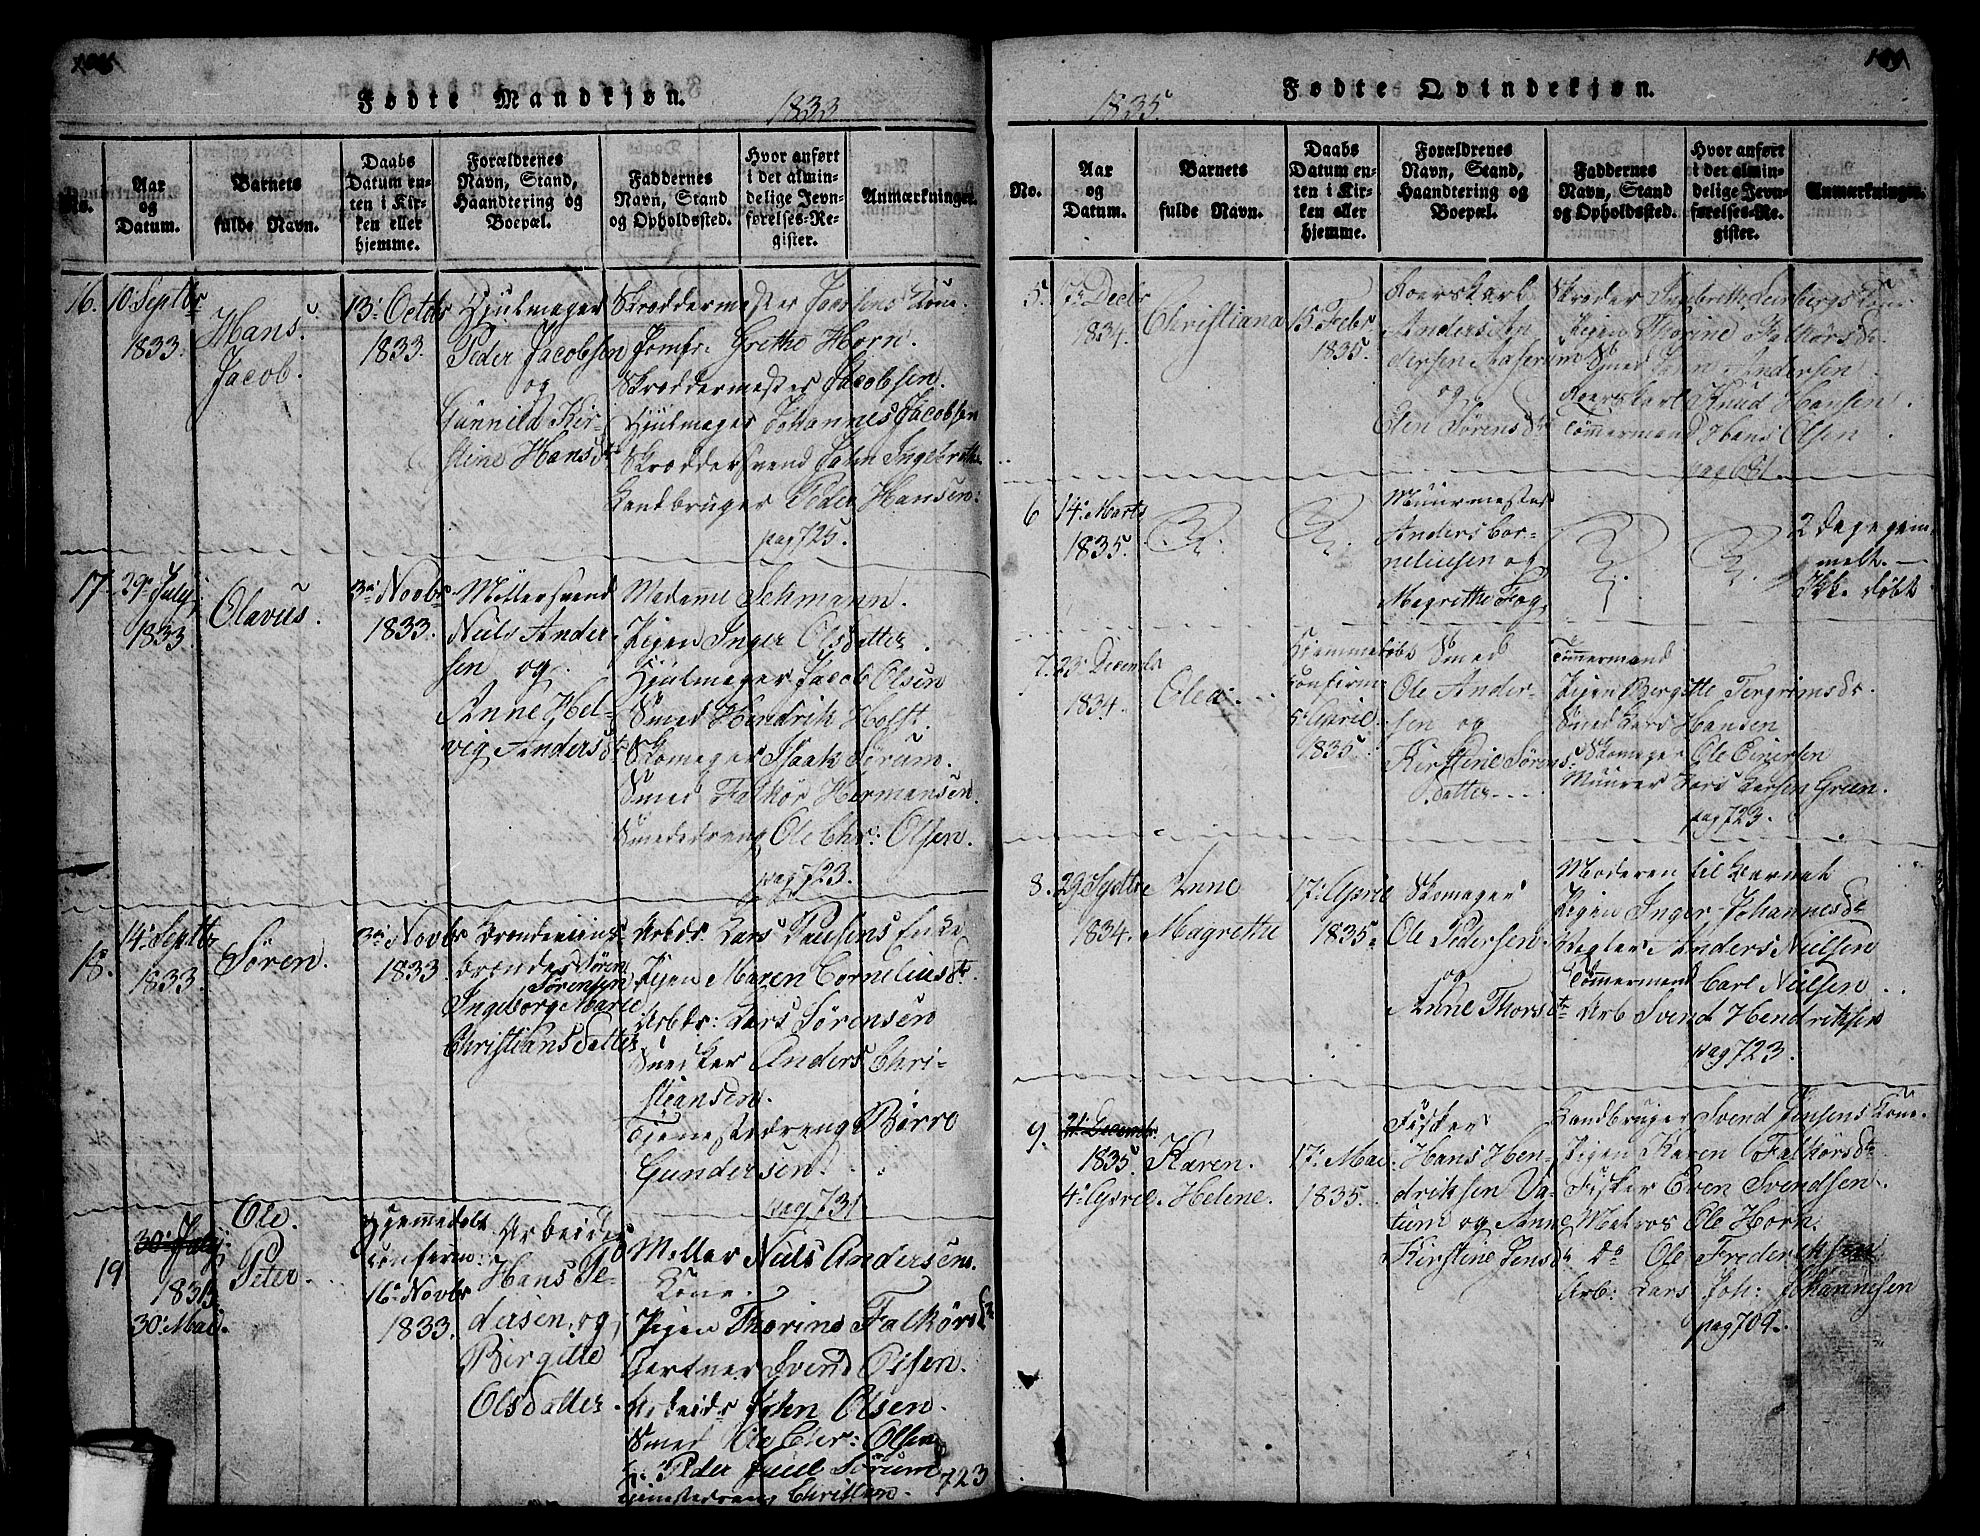 Fødte Mandkjøn.
1833
No.
Aar
og
Datum.
Barnets
fulde Navn.
Daabs
Datum en-
ten i Kir-
ken eller
hjemme.
Forældrenes
Navn, Stand,
Haandtering og
Boepæl.
Faddernes
Navn, Stand
og Opholdssted.
Hvor anført
i det almin-
delige Jevn-
førelses-Re-
gister.
Anmærkninger.
16.
10 Septbr
1833.
Hans
Jacob.
13. Octbr
1833.
Hjulmager
Peder Jacobsen
og
Gunnild Kir-
stine Hansdt
Skræddermester Jacobsens Kone.
Jomfr. Grethe Horn.
Skræddermester Jacobsen.
Hjulmager Johannes Jacobsen
Skræddersvend John Ingebrethsen
Landbruger Peder Hansen.
pag 725.
17
29 July
1833.
Olavus.
3 Novbr
1833.
Møllersvend
Niels Ander-
sen og
Anne Hel-
vig Andersdt
Madame Schmann.
Pigen Inger Olsdatter.
Hjulmager Jacob Olsen
Smed Hendrik Holst.
Skomager Isaak Sørum.
Smed Falkor Hermansen.
Smededreng Ole Chr: Olsen.
pag 723.
18.
14 Septbr
1833.
Søren.
3 Novbr
1833.
Søren
Sørensen
Ingeborg Marie
Christiansdatter
Arbdr. Lars Paulsens Enke
Pigen Maren Corneliusdt.
Arbdr: Lars Sørensen
Snedker Anders Chri-
stiansen.
Tjenestedreng Børro
Gundersen.
pag 731
19
30. July
1833.
30. Mai.
Ole
Peter
Hjemmedøbt
Confirm:
16. Novbr
1833.
Arbeider
Hans Pe-
dersen, og
Birgitte
Olsdatter.
Møller Niels Andersens
Kone.
Pigen Thorine Falkørsdt
Gartner Svend Olsen.
Arbeidr John Olsen.
Smed Ole Chr: Olsen
Peder Juul Sørum
Tjenestedreng Christian.
723
Fødte Qvindekjøn.
1835.
No.
Aar
og
Datum.
Barnets
fulde Navn.
Daabs
Datum en-
ten i Kir-
ken eller
hjemme.
Forældrenes
Navn, Stand,
Haandtering og
Boepæl.
Faddernes
Navn, Stand
og Opholdssted.
Hvor anført
i det almin-
delige Jevn-
førelses-Re-
gister.
Anmærkninger.
5.
7 Decbr
1834.
Christiana
15. Febr
1835.
Koerskarl
Anders An-
dersen Aaserum
og
Elen Sørensdt
Skræder Ingebreth Leinbergs Kone.
Pigen Thorine Falkørsdt.
Smed John Andersen
Koerskarl Knud Hansen.
Tømmermand Hans Olsen.
pag 681.
6
14. Marts
1835.
Muurmester
Anders Cor-
neliusen og
Magrethe Fog
2 Dage gam-
melt. —
Ikke døbt
7.
23. Decembr
1834.
Olea.
Hjemmedøbt
Confirm
5. April
1835.
Smed
Ole Ander-
sen og
Kirstine Sørens-
datter
Tømmermand
Pigen Bergitte Tergrimsdt.
Smed Lars Hansen
Skomager Ole Einersen
Muurer Lars Larsen Green.
pag 723.
8.
29 Septbr
1834.
Anne
Magrethe
17. April
1835.
Skomager
Ole Pedersen
og
Anne Thorsdt
Moderen til Barnet
Pigen Inger Johannesdt
Anders Nielsen
Tømmermand Carl Nielsen
Arb Svend Hendriksen
pag 723.
9.
21. Decembr.
1835
4. April.
Karen.
Helene.
17. Mai
1835.
Fisker
Hans Hen-
driksen Va-
tum og Anne
Kirstine Jensdt
Landbruger Svend Jensens Kone.
Pigen Karen Falkørsdt
Fisker Even Svendsen.
Matros Ole Horn.
Do Ole Frederiksen
Arb: Lars Joh: Johannesen
pag 709.